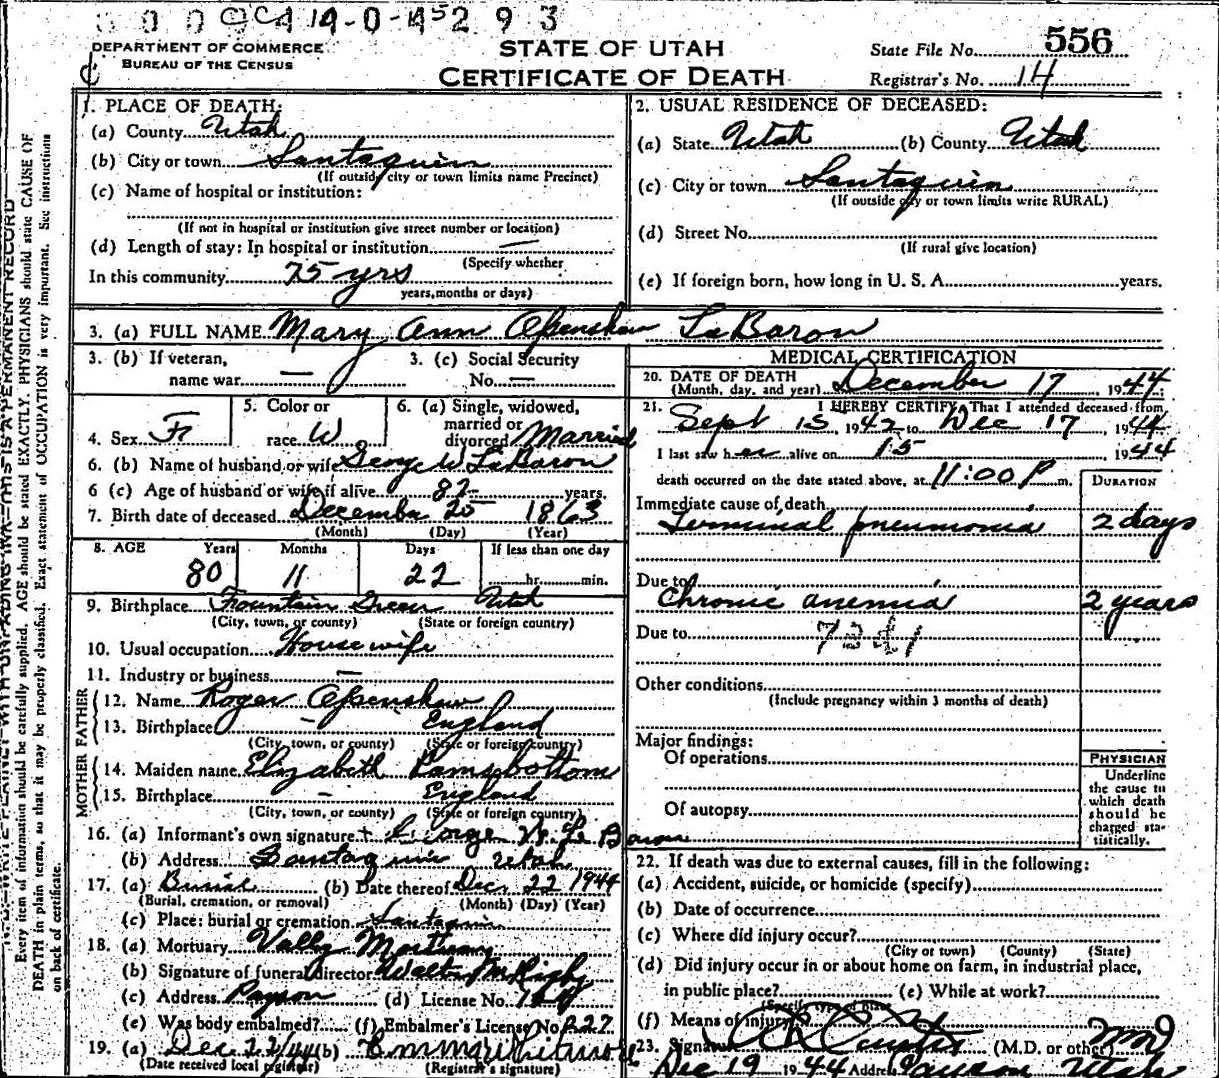 0 0 0 9 4 14-0-45 2 9 3
DEPARTMENT OF COMMERCE
BUREAU OF THE CENSUS
STATE OF UTAH
CERTIFICATE OF DEATH
State File No. 556
Registrar's No. 14
Every item of information should be carefully supplied. AGE should be stated EXACTLY. PHYSICIANS should state CAUSE OF
DEATH in plain terms, so that it may be properly classified. Exact statement of OCCUPATION is very important. See instructions
on back of certificate.
1. PLACE OF DEATH:
(a) County Utah
(b) City or town Santaquin
(If outside city or town limits name Precinct)
(c) Name of hospital or institution:
(If not in hospital or institution give street number or location)
(d) Length of stay: In hospital or institution —
(Specify whether
In this community 75 yrs
years, months or days)
2. USUAL RESIDENCE OF DECEASED:
(a) State Utah (b) County Utah
(c) City or town Santaquin
(If outside city or town limits write RURAL)
(d) Street No.
(If rural give location)
(e) If foreign born, how long in U. S. A. years.
3. (a) FULL NAME Mary Ann Openshaw LaBaron
3. (b) If veteran,
name war —
3. (c) Social Security
No. —
4. Sex F
5. Color or
race W
6. (a) Single, widowed,
married or
divorced Married
6. (b) Name of husband or wife George W. LaBaron
6 (c) Age of husband or wife if alive 82 years.
7. Birth date of deceased December 25 1863
(Month) (Day) (Year)
8. AGE Years Months Days If less than one day
80 11 22 hr. min.
9. Birthplace Fountain Green Utah
(City, town, or county) (State or foreign country)
10. Usual occupation Housewife
11. Industry or business —
FATHER
12. Name Roger Openshaw
13. Birthplace — England
(City, town, or county) (State or foreign country)
MOTHER
14. Maiden name Elizabeth Ramsbottom
15. Birthplace — England
(City, town, or county) (State or foreign country)
16. (a) Informant's own signature George W. Le Baron
(b) Address Santaquin Utah
17. (a) Burial (b) Date thereof Dec 22 1944
(Burial, cremation, or removal) (Month) (Day) (Year)
(c) Place: burial or cremation Santaquin
18. (a) Mortuary Vally Mortuary
(b) Signature of funeral director
(c) Address Payson (d) License No.
(e) Was body embalmed? (f) Embalmer's License No. 227
19. (a) Dec 22/44 (b) Emma Whitmore
(Date received local registrar) (Registrar's signature)
MEDICAL CERTIFICATION
20. DATE OF DEATH
(Month, day, and year) December 17 1944
21. I HEREBY CERTIFY, That I attended deceased from
Sept 15, 1942 to Dec 17, 1944
I last saw her alive on 15 1944
death occurred on the date stated above, at 11:00 P m.
DURATION
Immediate cause of death
Terminal pneumonia 2 days
Due to
Chronic anemia 2 years
Due to
Other conditions
(Include pregnancy within 3 months of death)
Major findings:
Of operations
Of autopsy
PHYSICIAN
Underline
the cause to
which death
should be
charged sta-
tistically.
22. If death was due to external causes, fill in the following:
(a) Accident, suicide, or homicide (specify)
(b) Date of occurrence
(c) Where did injury occur?
(City or town) (County) (State)
(d) Did injury occur in or about home on farm, in industrial place,
in public place? (e) While at work?
(Specify type of place)
(f) Means of injury
23. Signature (M.D. or other) MD
Dec 19 1944 Address Payson Utah